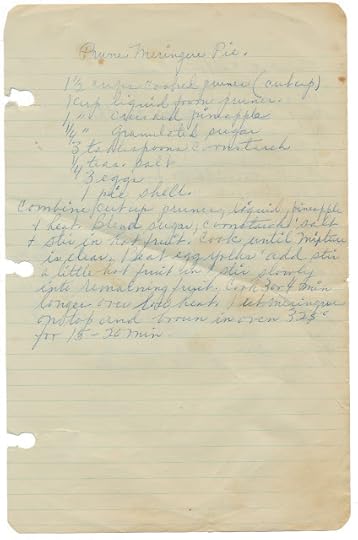 Prune Meringue Pie.
1 1/2 cups cooked prunes (cut up)
1 cup liquid from prunes.
1/4 " crushed pineapple
1/4 " granulated sugar
3 tablespoons cornstarch
1/4 teas. salt
3 eggs
1 pie shell.
Combine cut up prunes, liquid, pineapple
+ heat. Blend sugar, cornstarch salt
+ stir in hot fruit. Cook until mixture
is clear, beat egg yolks add stir
a little hot fruit in + stir slowly
into remaining fruit. Cook 3 or 4 min
longer over low heat, put meringue
on top and brown in oven 325°
for 15-20 min.